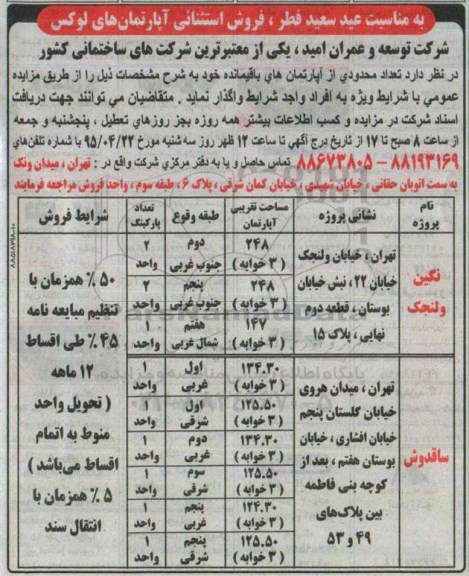 به مناسبت عید سعید فطر ، فروش استثنائی آپارتمان‌های لوکس
شرکت توسعه و عمران امید ، یکی از معتبرترین شرکت های ساختمانی کشور
در نظر دارد تعداد محدودی از آپارتمان های باقیمانده خود به شرح مشخصات ذیل را از طریق مزایده
عمومی با شرایط ویژه به افراد واجد شرایط واگذار نماید . متقاضیان می توانند جهت دریافت
اسناد شرکت در مزایده و کسب اطلاعات بیشتر همه روزه بجز روزهای تعطیل ، پنجشنبه و جمعه
از ساعت ۸ صبح تا ۱۷ از تاریخ درج آگهی تا ساعت ۱۲ ظهر روز سه شنبه مورخ ۹۵/۰۴/۲۲ با شماره تلفن‌های
۸۸۱۹۳۱۶۹ – ۸۸۶۷۳۸۰۵ تماس حاصل و یا به دفتر مرکزی شرکت واقع در : تهران ، میدان ونک
به سمت اتوبان حقانی ، خیابان شهیدی ، خیابان کمان شرقی ، پلاک ۶ ، طبقه سوم ، واحد فروش مراجعه فرمایند
نام پروژه
نشانی پروژه
مساحت تقریبی آپارتمان
طبقه وقوع
تعداد پارکینگ
شرایط فروش
نگین ولنجک
تهران ، خیابان ولنجک
خیابان ۲۲، نبش خیابان
بوستان ، قطعه دوم
نهایی ، پلاک ۱۵
۲۴۸ ( ۳ خوابه ) دوم جنوب غربی ۲ واحد
۲۴۸ ( ۳ خوابه ) پنجم جنوب غربی ۲ واحد
۱۴۷ ( ۳ خوابه ) هفتم شمال غربی ۱ واحد
ساقدوش
تهران ، میدان هروی
خیابان گلستان پنجم
خیابان افشاری ، خیابان
بوستان هفتم ، بعد از
کوچه بنی فاطمه
بین پلاک‌های
۴۹ و ۵۳
۱۳۴.۳۰ ( ۳ خوابه ) اول غربی ۱ واحد
۱۲۵.۵۰ ( ۳ خوابه ) اول شرقی ۱ واحد
۱۳۴.۳۰ ( ۳ خوابه ) دوم غربی ۱ واحد
۱۲۵.۵۰ ( ۳ خوابه ) سوم شرقی ۱ واحد
۱۲۴.۳۰ ( ۳ خوابه ) پنجم غربی ۱ واحد
۱۲۵.۵۰ ( ۳ خوابه ) پنجم شرقی ۱ واحد
۵۰ ٪ همزمان با
تنظیم مبایعه نامه
۴۵ ٪ طی اقساط
۱۲ ماهه
( تحویل واحد
منوط به اتمام
اقساط می‌باشد )
۵ ٪ همزمان با
انتقال سند